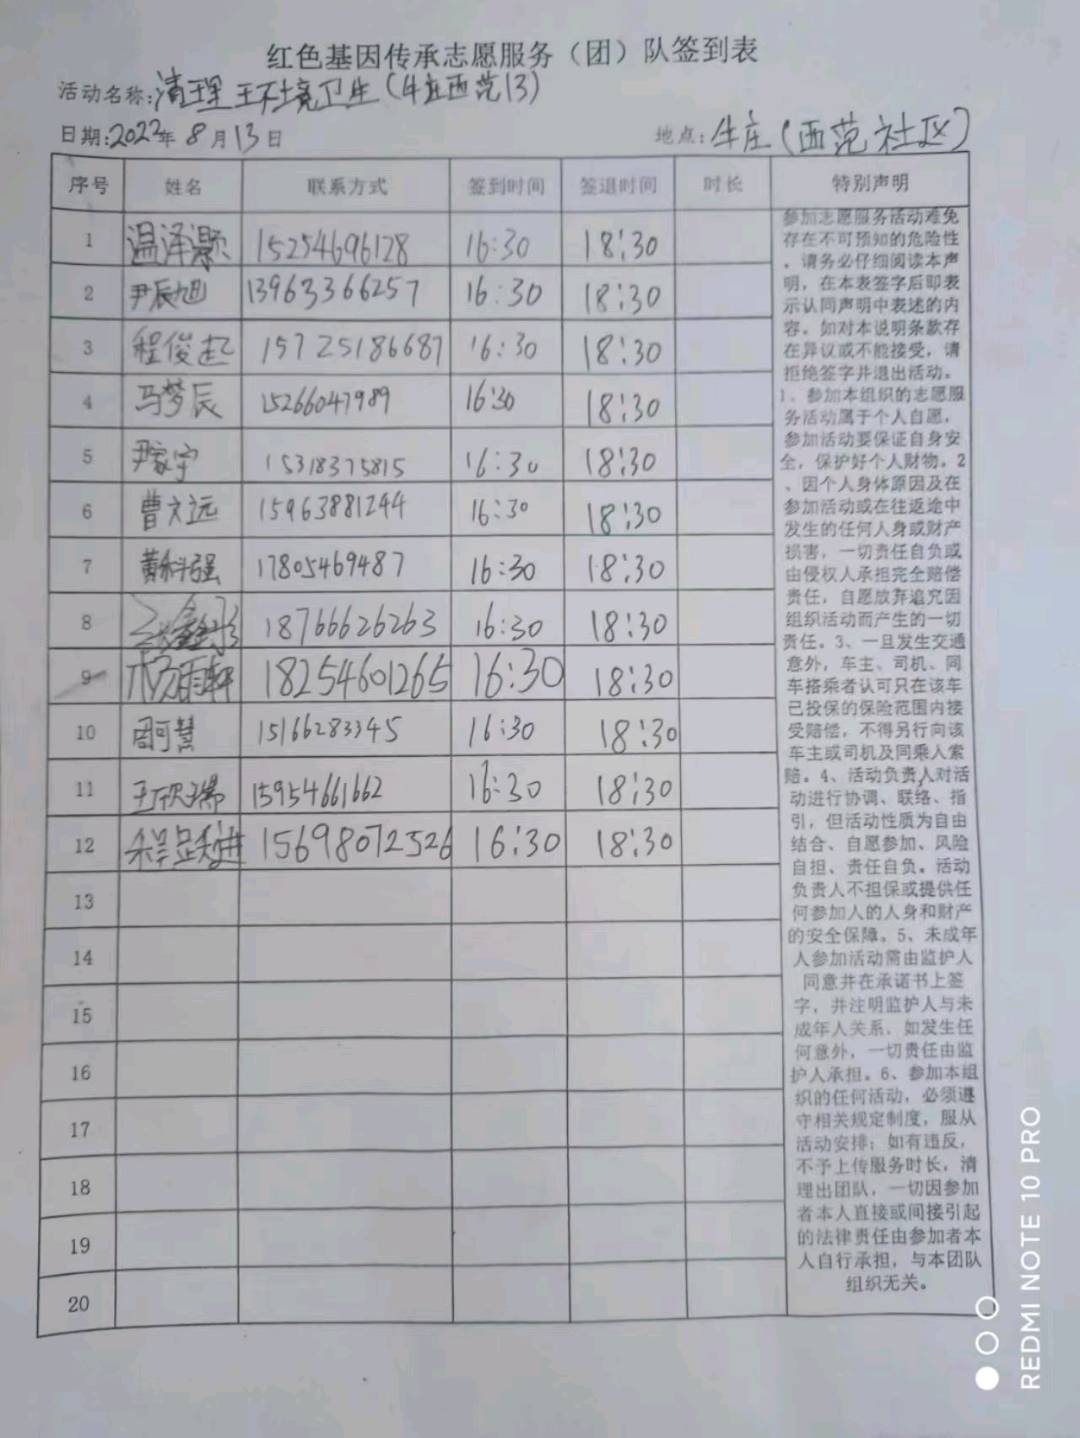 红色基因传承志愿服务（团）队签到表
活动名称:清理环境卫生(牛庄西范13)
日期:2022年8月13日 地点:牛庄(西范社区)
序号 姓名 联系方式 签到时间 签退时间 时长 特别声明
1 温泽灏 15254696128 16:30 18:30
2 尹辰旭 13963366257 16:30 18:30
3 程俊起 15725186687 16:30 18:30
4 马梦辰 15266047989 16:30 18:30
5 尹家宁 15318375815 16:30 18:30
6 曹文远 15963881244 16:30 18:30
7 黄科强 17805469487 16:30 18:30
8 18766626263 16:30 18:30
9 杨雨轩 18254601265 16:30 18:30
10 周可慧 15166283345 16:30 18:30
11 王欣瑞 15954661662 16:30 18:30
12 15698072526 16:30 18:30
13
14
15
16
17
18
19
20
参加志愿服务活动难免
存在不可预知的危险性
，请务必仔细阅读本声
明，在本表签字后即表
示认同声明中表述的内
容。如对本说明条款存
在异议或不能接受，请
拒绝签字并退出活动。
1、参加本组织的志愿服
务活动属于个人自愿，
参加活动要保证自身安
全，保护好个人财物。2
、因个人身体原因及在
参加活动或在往返途中
发生的任何人身或财产
损害，一切责任自负或
由侵权人承担完全赔偿
责任，自愿放弃追究因
组织活动而产生的一切
责任。3、一旦发生交通
意外，车主、司机、同
车搭乘者认可只在该车
已投保的保险范围内接
受赔偿，不得另行向该
车主或司机及同乘人索
赔。4、活动负责人对活
动进行协调、联络、指
引，但活动性质为自由
结合、自愿参加、风险
自担、责任自负。活动
负责人不担保或提供任
何参加人的人身和财产
的安全保障。5、未成年
人参加活动需由监护人
同意并在承诺书上签
字，并注明监护人与未
成年人关系，如发生任
何意外，一切责任由监
护人承担。6、参加本组
织的任何活动，必须遵
守相关规定制度，服从
活动安排；如有违反，
不予上传服务时长，清
理出团队，一切因参加
者本人直接或间接引起
的法律责任由参加者本
人自行承担，与本团队
组织无关。
REDMI NOTE 10 PRO